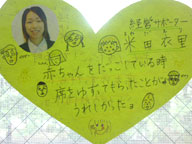 経営サポーター
米田衣里
赤ちゃんをだっこしている時
席をゆずってもらったことが
うれしかったよ。